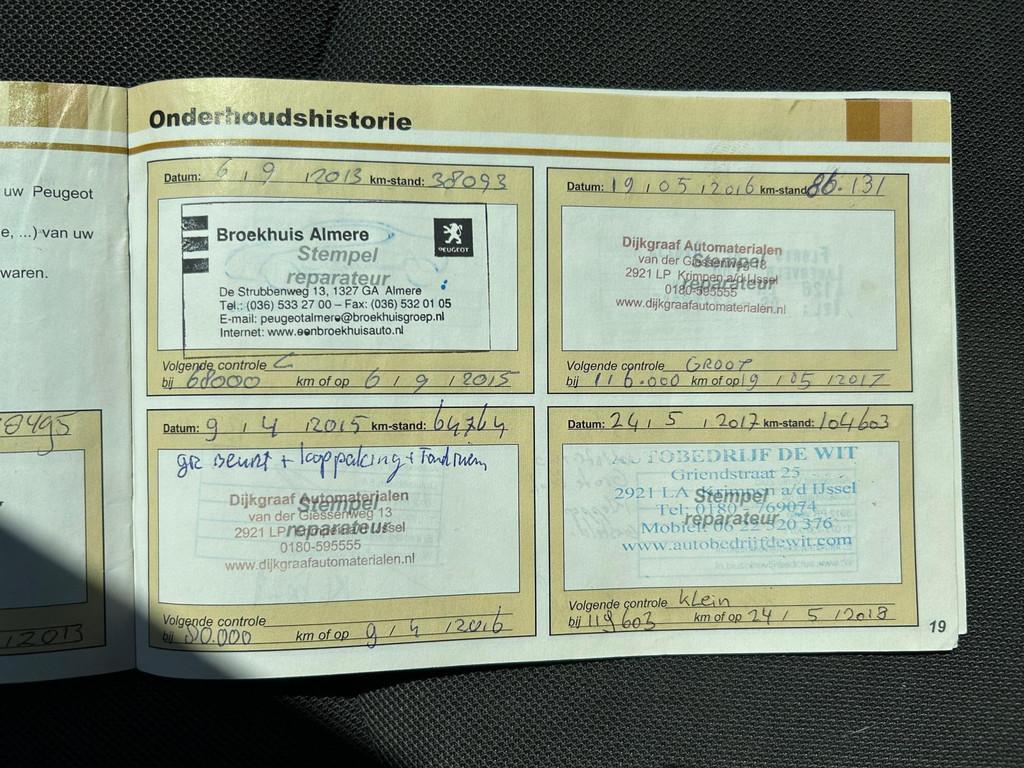 uw Peugeot
e, ...) van uw
waren.
8495
2013
Onderhoudshistorie
Datum: 6 / 9 / 2013 km-stand: 38093
Broekhuis Almere
PEUGEOT
Stempel
reparateur
De Strubbenweg 13, 1327 GA Almere
Tel.: (036) 533 27 00 – Fax: (036) 532 01 05
E-mail: peugeotalmere@broekhuisgroep.nl
Internet: www.eenbroekhuisauto.nl
Volgende controle C
bij 68000 km of op 6 / 9 / 2015
Datum: 19 / 05 / 2016 km-stand: 86.131
Dijkgraaf Automaterialen
van der Giessenweg 13
Stempel
2921 LP Krimpen a/d IJssel
reparateur
0180-595555
www.dijkgraafautomaterialen.nl
Volgende controle GROOT
bij 116.000 km of op 19 / 05 / 2017
Datum: 9 / 4 / 2015 km-stand: 64764
gr Beurt +
Dijkgraaf Automaterialen
Stempel
van der Giessenweg 13
2921 LP IJssel
reparateur
0180-595555
www.dijkgraafautomaterialen.nl
Volgende controle
bij 80.000 km of op 9 / 4 / 2016
Datum: 24 / 5 / 2017 km-stand: 104603
AUTOBEDRIJF DE WIT
Griendstraat 25
2921 LA Krimpen a/d IJssel
Stempel
Tel: 0180 - 769074
reparateur
Mobiel: 06 22 520 376
www.autobedrijfdewit.com
Volgende controle Klein
bij 119603 km of op 24 / 5 / 2018
19